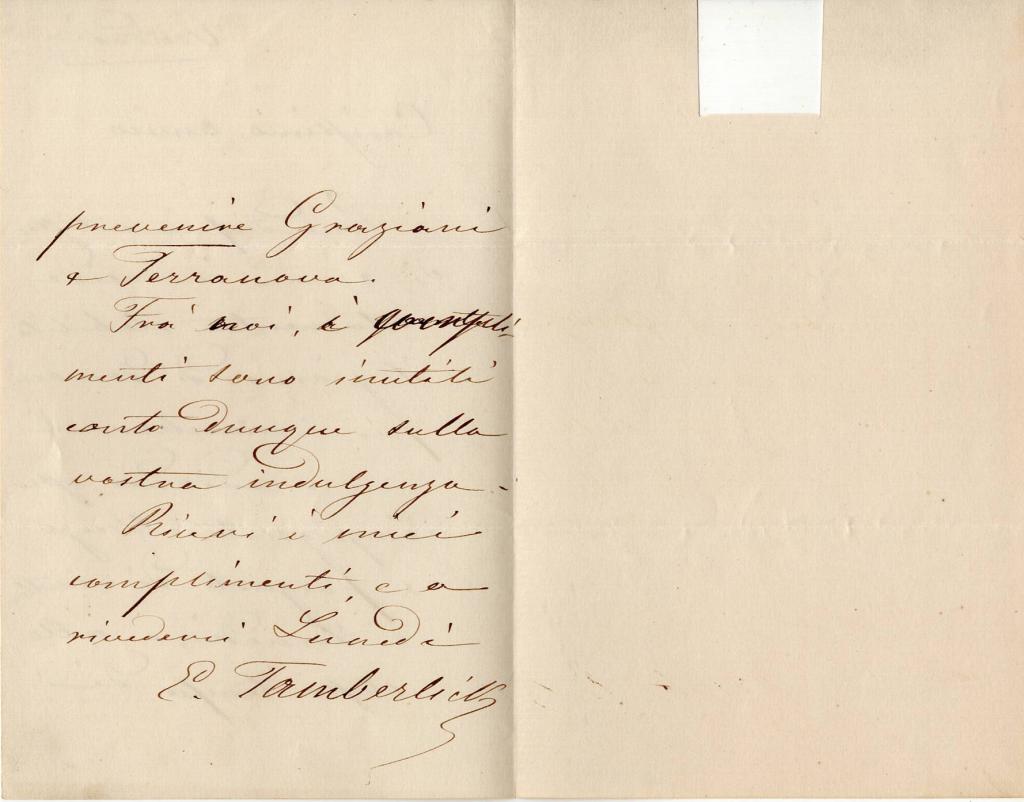 prevenire Graziani
e Terranova.
Frà noi, i compli-
menti sono inutili
conto dunque sulla
vostra indulgenza -
Ricevi i miei
complimenti, e a
rivederci Lunedì
E. Tamberlick